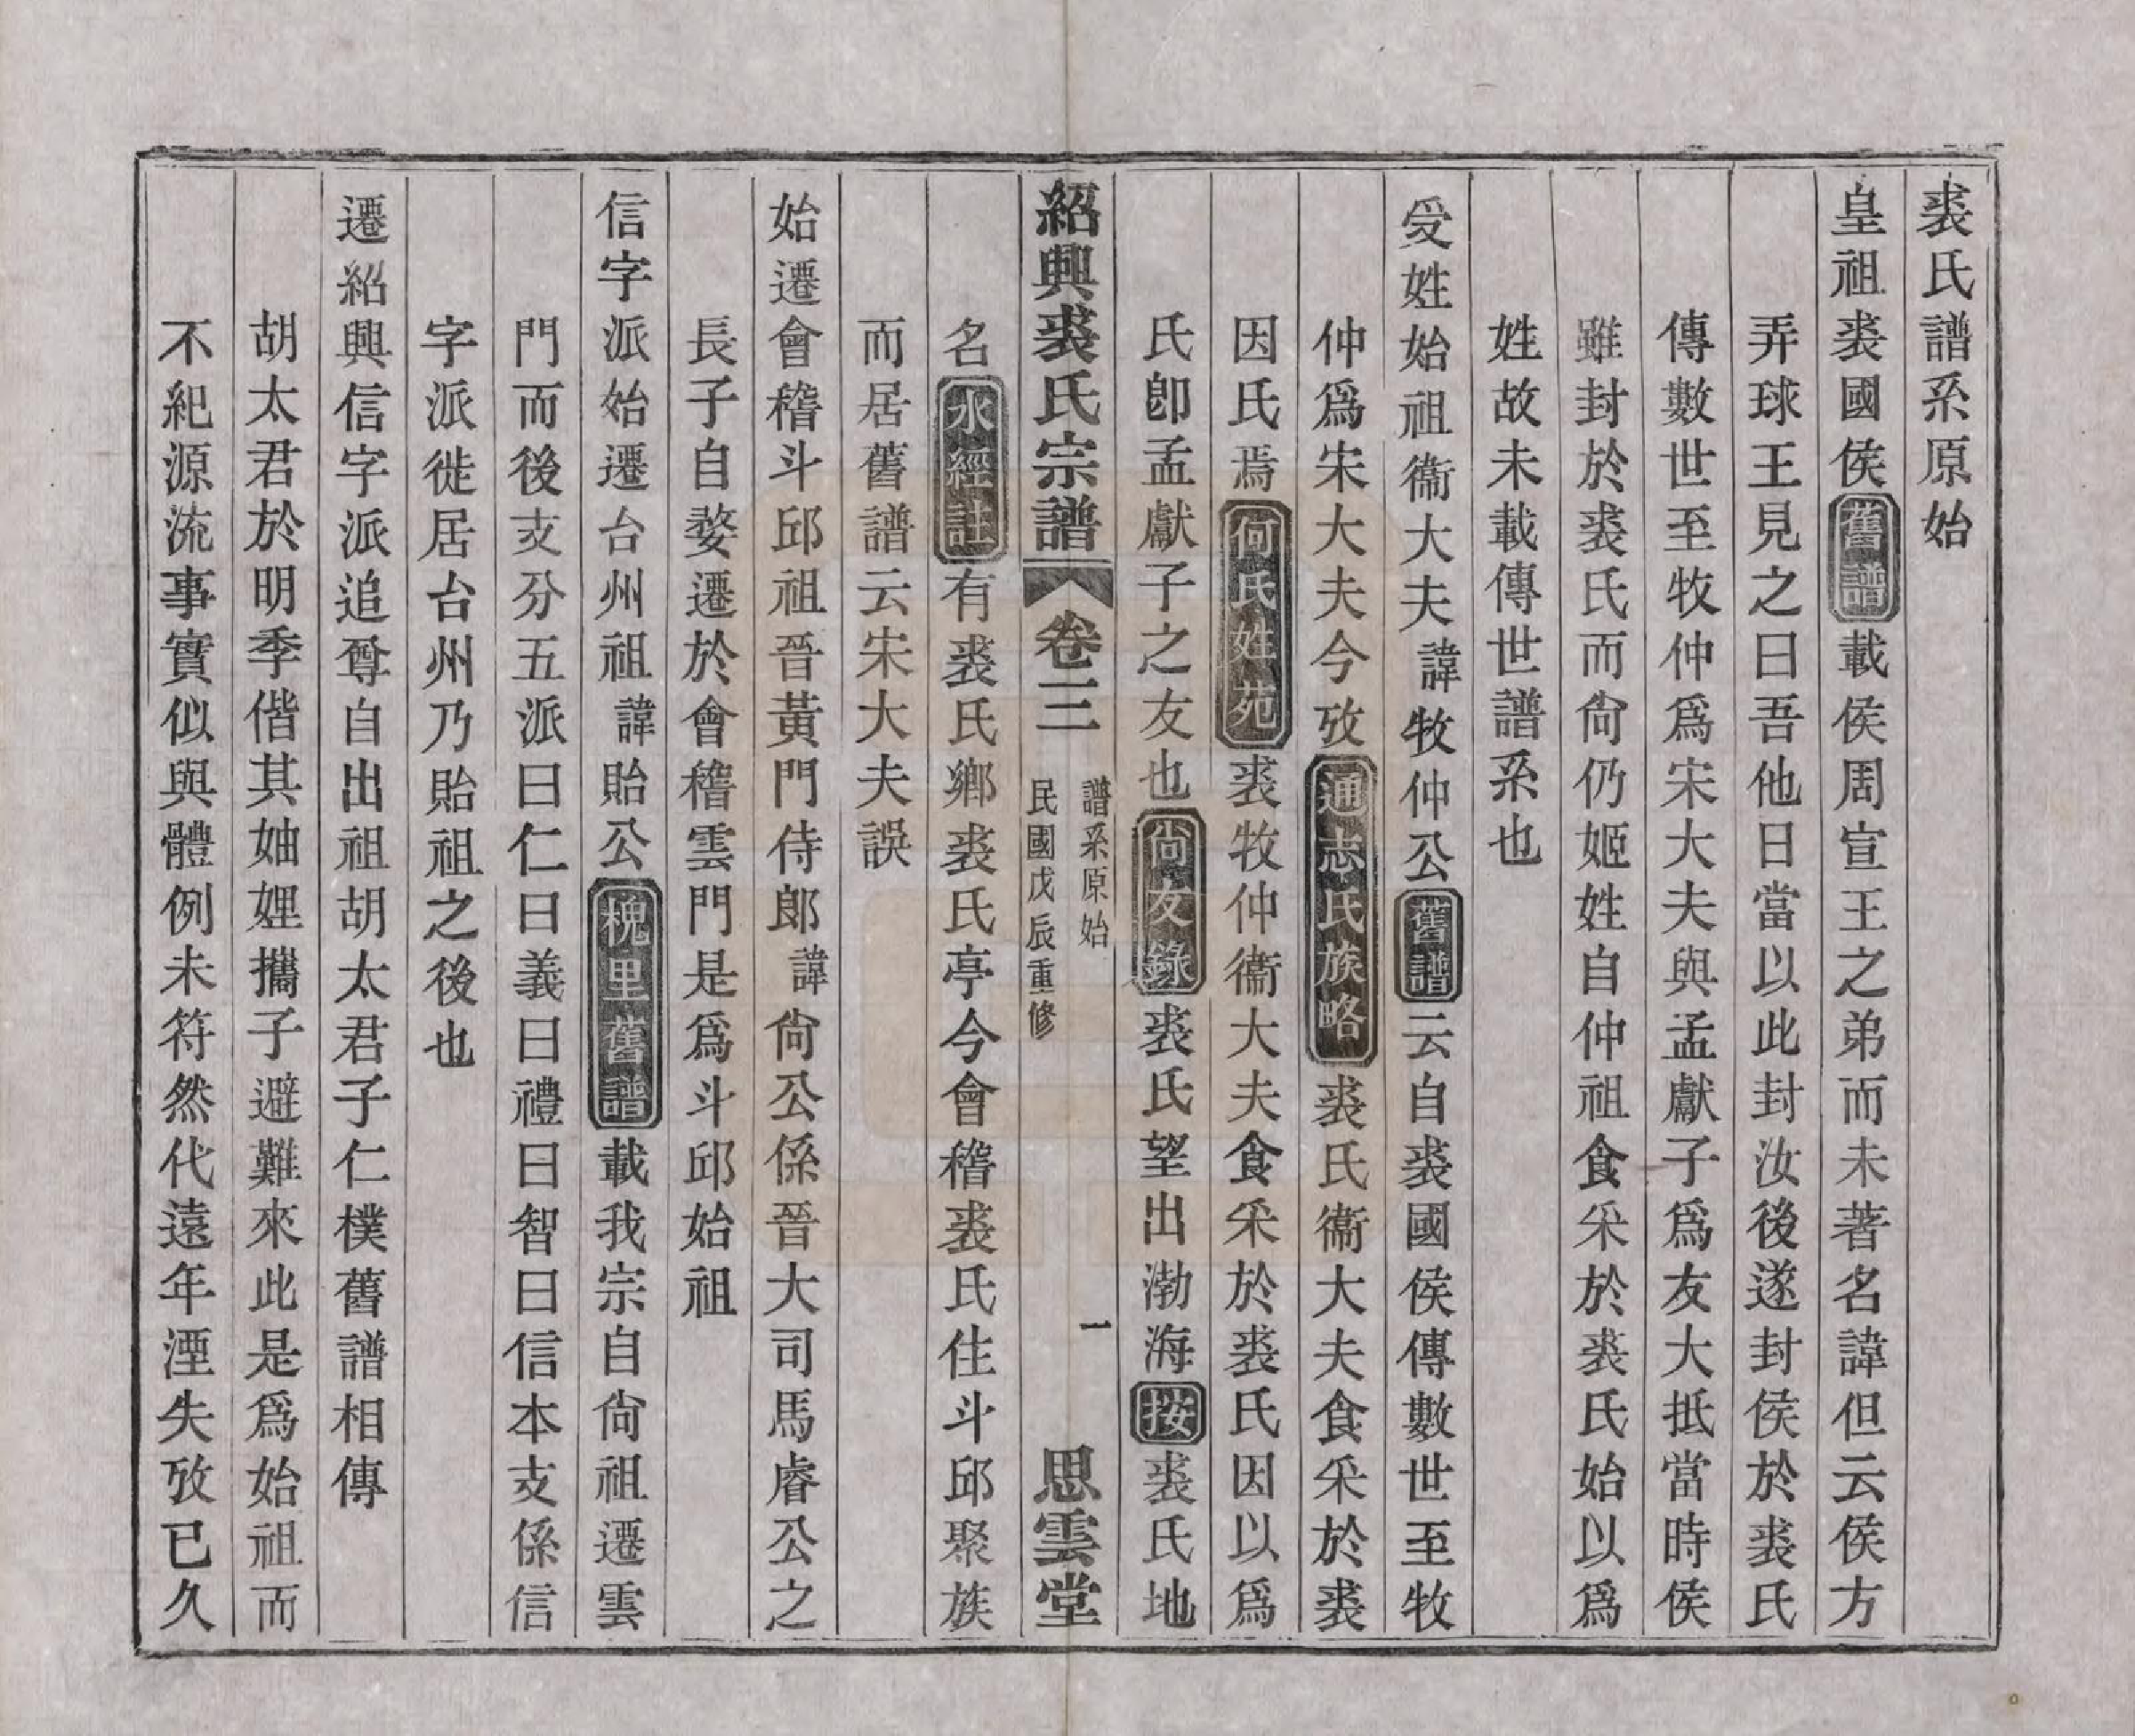 裘氏譜系原始
皇祖裘國侯舊譜載侯周宣王之弟而未著名諱但云侯方
弄球王見之曰吾他日當以此封汝後遂封侯於裘氏
傳數世至牧仲爲宋大夫與孟獻子爲友大抵當時侯
雖封於裘氏而尙仍姬姓自仲祖食采於裘氏始以爲
姓故未載傳世譜系也
受姓始祖衞大夫諱牧仲公舊譜云自裘國侯傳數世至牧
仲爲宋大夫今攷通志氏族略裘氏衞大夫食采於裘
因氏焉何氏姓苑裘牧仲衞大夫食采於裘氏因以爲
氏卽孟獻子之友也尙友錄裘氏望出渤海按裘氏地
紹興裘氏宗譜 卷三 譜系原始 一 思雲堂
民國戊辰重修
名水經註有裘氏鄉裘氏亭今會稽裘氏住斗邱聚族
而居舊譜云宋大夫誤
始遷會稽斗邱祖晉黃門侍郞諱尙公係晉大司馬睿公之
長子自婺遷於會稽雲門是爲斗邱始祖
信字派始遷台州祖諱貽公槐里舊譜載我宗自尙祖遷雲
門而後支分五派曰仁曰義曰禮曰智曰信本支係信
字派徙居台州乃貽祖之後也
遷紹興信字派追尊自出祖胡太君子仁樸舊譜相傳
胡太君於明季偕其妯娌攜子避難來此是爲始祖而
不紀源流事實似與體例未符然代遠年湮失攷已久